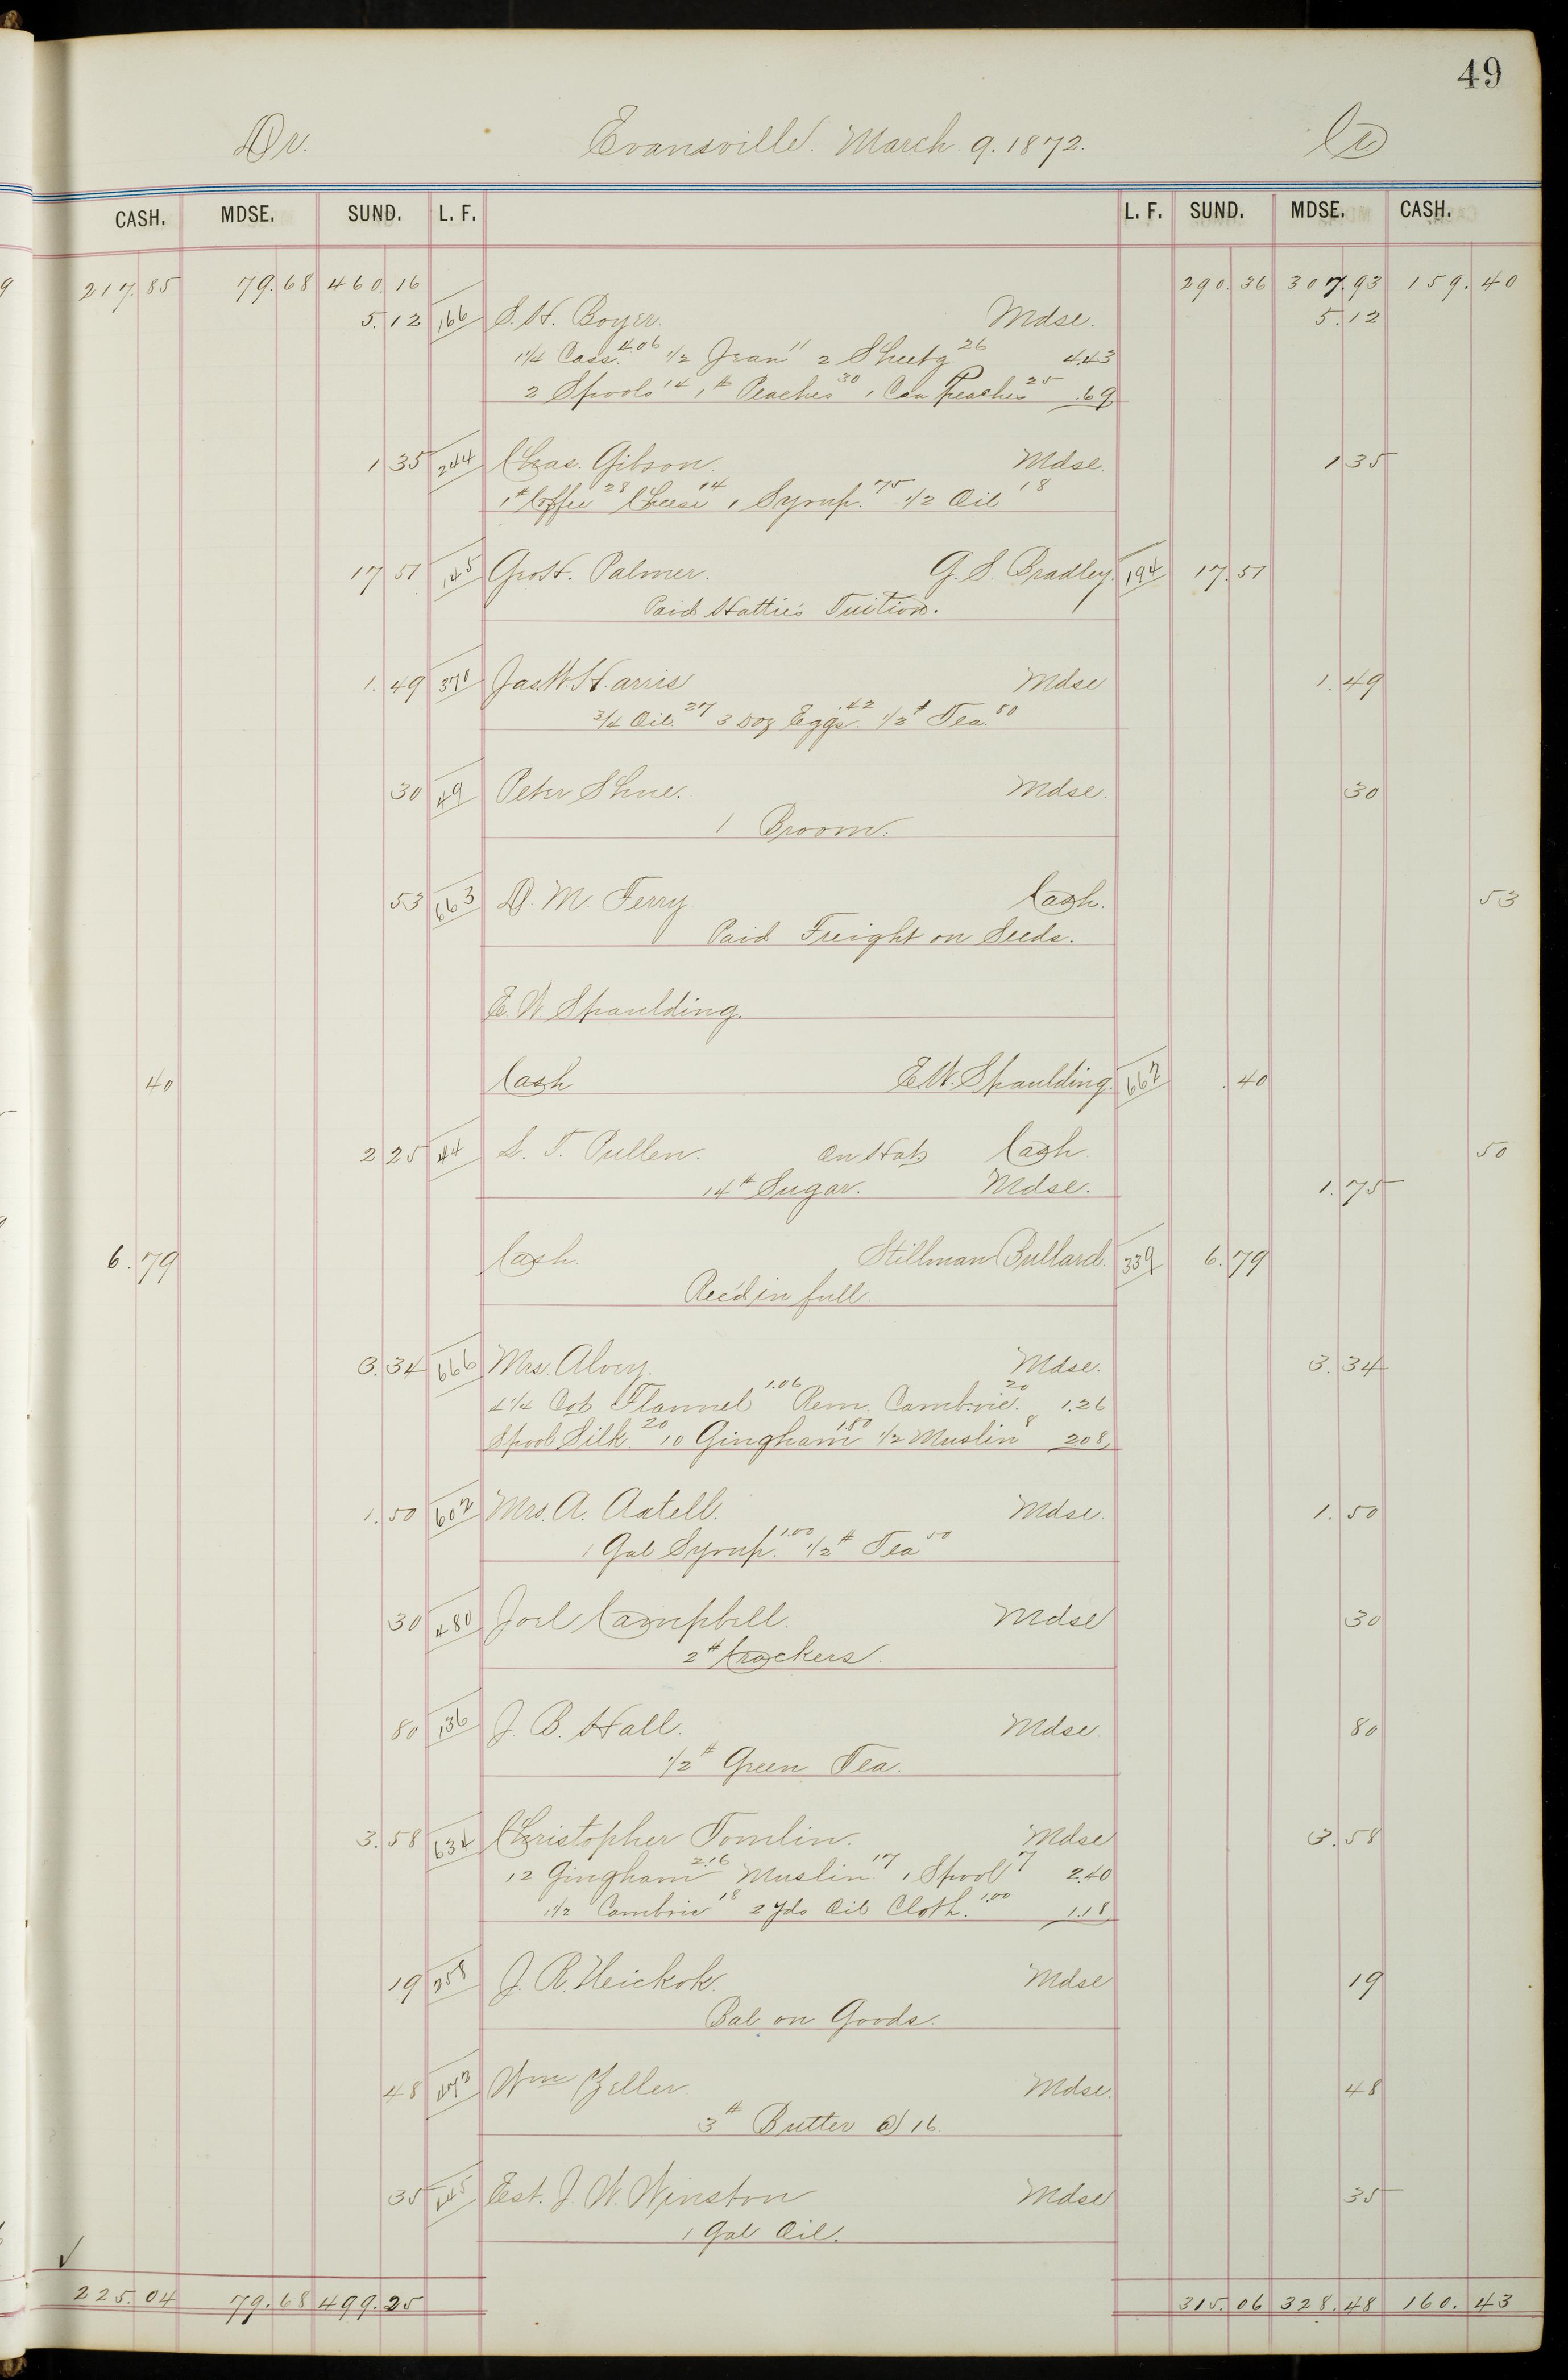 49
Dr. Evansville. March. 9. 1872. Cr
CASH. MDSE. SUND. L. F. L. F. SUND. MDSE. CASH.
217.85 79.68 460.16 290.36 307.93 159.40
5.12 166 S. H. Boyer. Mdse. 5.12
1 1/4 Cass. 4.06 1/2 Jean 11 2 Sheetg 26 4.43
2 Spools 14 1 # Peaches 30 1 Can Peaches 25 .69
1 35 244 Chas. Gibson. Mdse. 1 35
1 # Coffee 28 Cheese 14 1 Syrup. 75 1/2 Oil 18
17 51 145 Geo H. Palmer. G. S. Bradley. 194 17.51
Paid Hattie's Tuition.
1.49 370 Jas. W. Harris Mdse 1.49
3/4 Oil. 27 3 Doz Eggs. .42 1/2 # Tea. 80
30 49 Peter Shue. Mdse. 30
1 Broom.
53 663 D. M. Ferry Cash. 53
Paid Freight on Seeds.
E W Spaulding.
40 Cash E. W. Spaulding. 662 .40
2 25 44 L. T. Pullen. On Hats Cash. 50
14 # Sugar. Mdse. 1.75
6.79 Cash. Stillman Bullard. 339 6.79
Rec'd in full.
3.34 666 Mrs. Alvery. Mdse. 3.34
4 1/4 Cot Flannel 1.06 Rem. Cambric. 20 1.26
Spool Silk. 20 10 Gingham 1.80 1/2 Muslin 8 2.08
1.50 602 Mrs. A. Axtell. Mdse. 1.50
1 Gal Syrup. 1.00 1/2 # Tea 50
30 480 Joel Campbell. Mdse 30
2 # Crackers.
80 136 J. B. Hall. Mdse. 80
1/2 # Green Tea.
3.58 634 Christopher Tomlin. Mdse 3.58
12 Gingham 2.16 Muslin 17 1 Spool 7 2.40
1 1/2 Cambric 18 2 Yds Oil Cloth. 1.00 1.18
19 258 J. R. Heickok. Mdse 19
Bal on Goods.
48 472 Wm Zeller. Mdse. 48
3 # Butter @ 16
35 445 Est. J. W. Winston Mdse 35
1 Gal Oil.
225.04 79.68 499.25 315.06 328.48 160.43